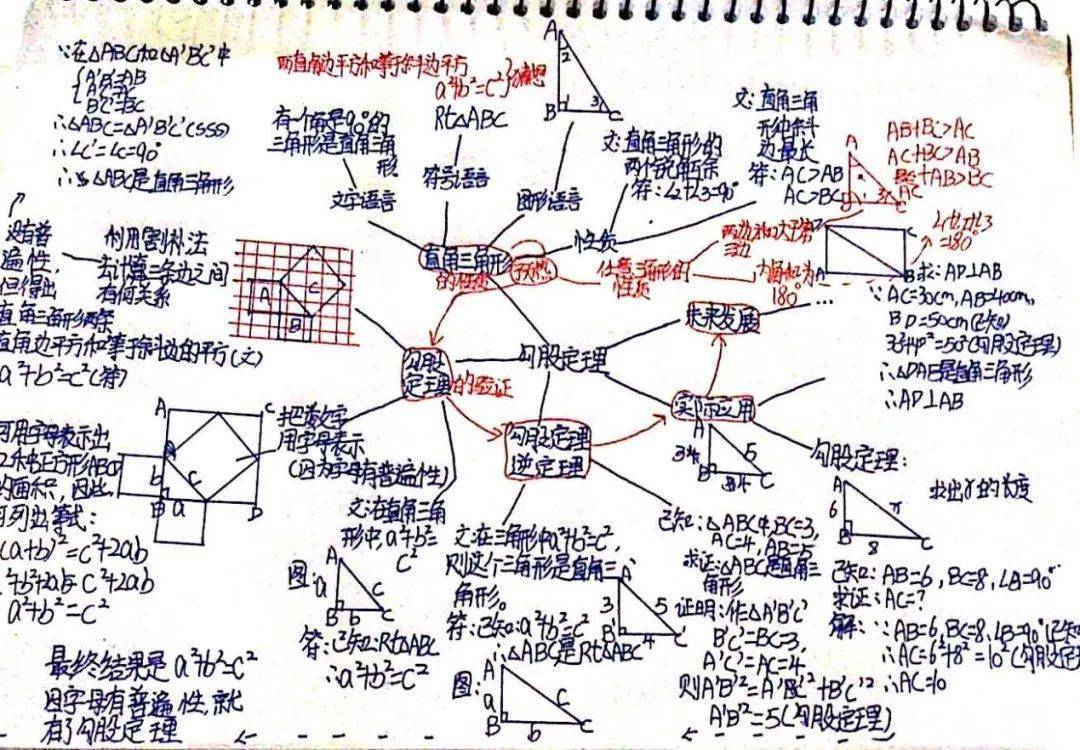 ∵在△ABC和△A'B'C'中
A'B'=AB
A'C'=AC
B'C'=BC
∴△ABC≌△A'B'C'(SSS)
∴∠C'=∠C=90°
∴△ABC是直角三角形
两直角边平方和等于斜边平方
a²+b²=c²}猜想
有一个角是90°的
三角形是直角三角
形
文字语言
Rt△ABC
符号语言
图形语言
A
2
B
1
3
C
文:直角三角形的
两个锐角互余
符:∠2+∠3=90°
性质
文:直角三角
形中斜
边最长
符:AC>AB
AC>BC
AB+BC>AC
AC+BC>AB
AC
+AB>BC
直角三角形
的性质
猜想
任意三角形的
性质
两边和大于第
三边
内角和为
180°
∠1+∠2+∠3
=180
没有普
遍性,
但得出
直角三角形两条
直角边平方和等于斜边的平方(文)
a²+b²=c²(符)
利用割补法
去计算三条边之间
有何关系
A
B
C
勾股
定理
的验证
勾股定理
未来发展
...
实际应用
勾股定理
逆定理
A
B
求:AD⊥AB
∵AC=30cm,AB=40cm,
BD=50cm(已知)
∴△DAB是直角三角形
∴AD⊥AB
A
C
B
D
b
a
c
可用字母表示出
的面积,因此,
可列出等式:
(a+b)²=c²+2ab
a²+b²=c²
最终结果是a²+b²=c²
因字母有普遍性,就
有了勾股定理
把数字
用字母表示
(因为字母有普遍性)
文:在直角三角
形中,a²+b²=
c²
图:
A
a
c
B
b
C
符:已知:Rt△ABC
∴a²+b²=c²
文:在三角形中a²+b²=c²,
则这个三角形是直角三
角形。
符:已知:a²+b²=c²
∴△ABC是Rt△ABC
图:
A
a
c
B
b
C
A
3
5
B
4
C
已知:△ABC中,BC=3,
AC=4,AB=5
求证:△ABC是直角三
角形
A'
3
5
B'
4
C'
证明:作△A'B'C'
B'C'=BC=3,
A'C'=AC=4
则A'B'²=A'C'²+B'C'²
A'B'²=5(勾股定理)
勾股定理:
求出x的长度
A
6
x
B
8
C
已知:AB=6,BC=8,∠B=90°
求证:AC=?
解:∵AB=6,BC=8,∠B=90°(已知)
∴AC=6²+8²=10²(勾股定理)
∴AC=10